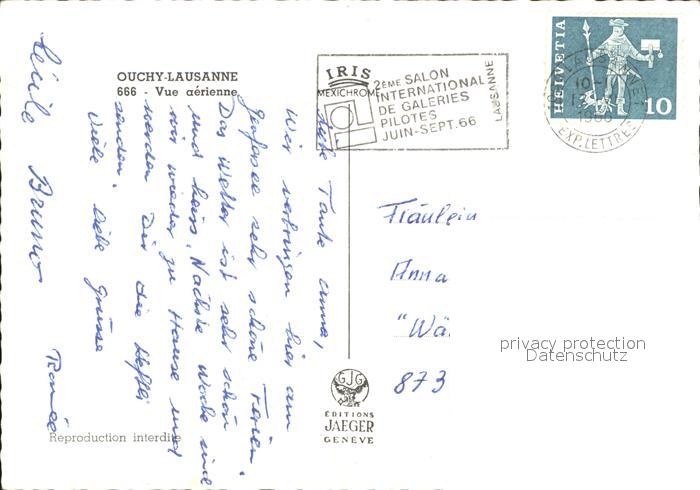 OUCHY-LAUSANNE
666 - Vue aérienne
IRIS
MEXICHROME
2ÈME SALON
INTERNATIONAL
DE GALERIES
PILOTES
JUIN-SEPT. 66
LAUSANNE
HELVETIA
10
LAUSANNE
1966
EXP. LETTRES
Tante Anna,
Wir verbringen hier am
Genfersee sehr schöne Ferien.
Das Wetter ist sehr schön
und heiss. Nächste Woche sind
wir wieder zu Hause und
werden Dir die
senden.
Viele liebe Grüsse
Bruno Renée
Fräulein
Anna
"Wä
873
privacy protection
Datenschutz
GJG
ÉDITIONS
JAEGER
GENÈVE
Reproduction interdite